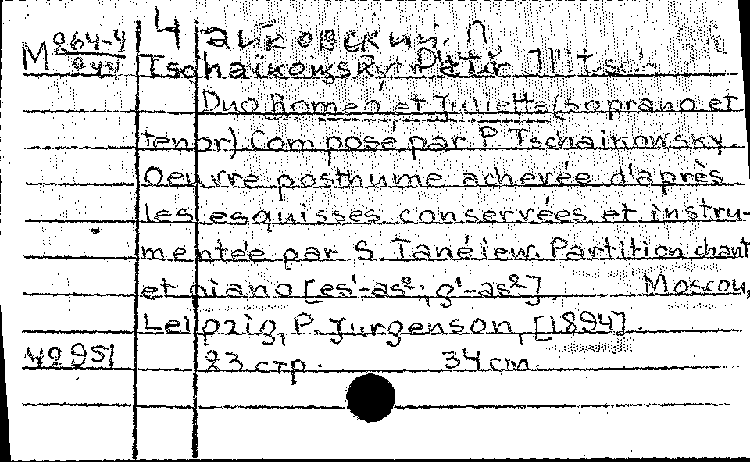 М 964-4 Чайковский, П.
Tschaikowsky, Peter Illts.
Duo Romeo et Juliette (soprano et
tenor) Composé par P. Tschaikowsky.
Oeuvre posthume achevée d'après
les esquisses conservées et instru-
mentée par S. Tanéiew. Partition chant
et piano [es¹-as²; g¹-as²]. Moscou,
Leipzig, P. Jurgenson, [1894].
23 стр. 34 cm.